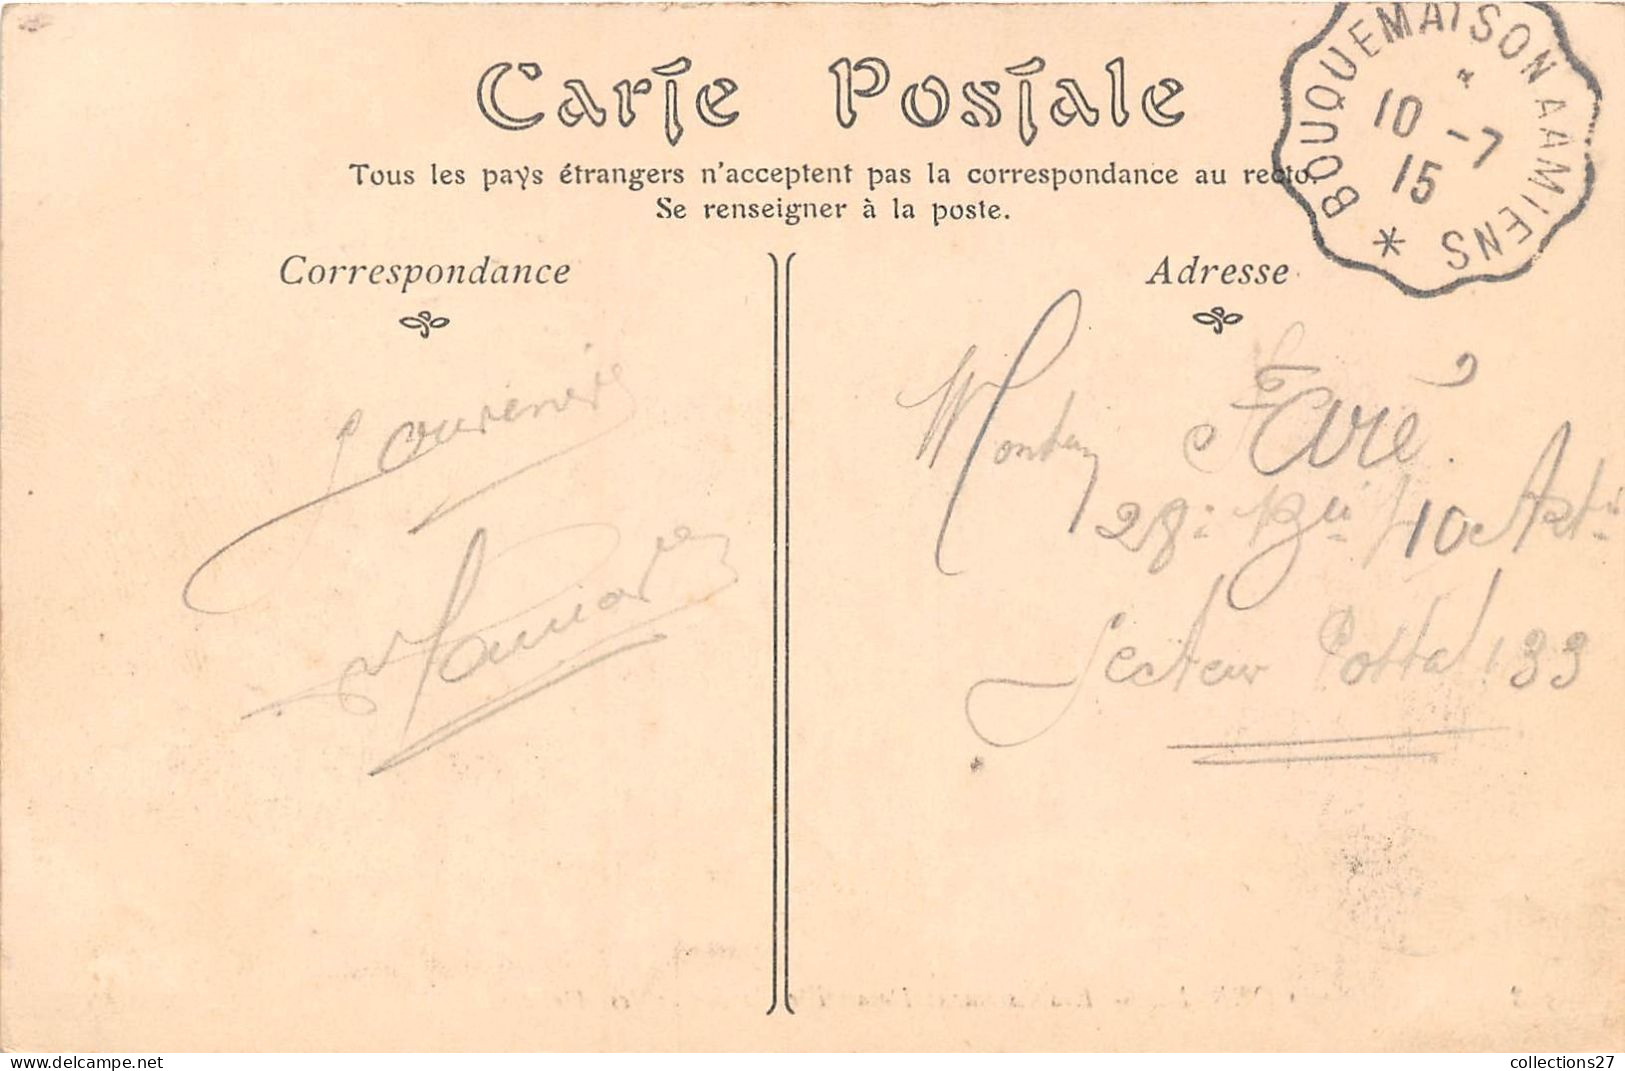 Carte Postale
Tous les pays étrangers n'acceptent pas la correspondance au recto.
Se renseigner à la poste.
BOUQUEMAISON A AMIENS *
10 -7
15
Correspondance
Adresse
Souvenir
Favré
28e 10e Art
Secteur Postal 133
collections27